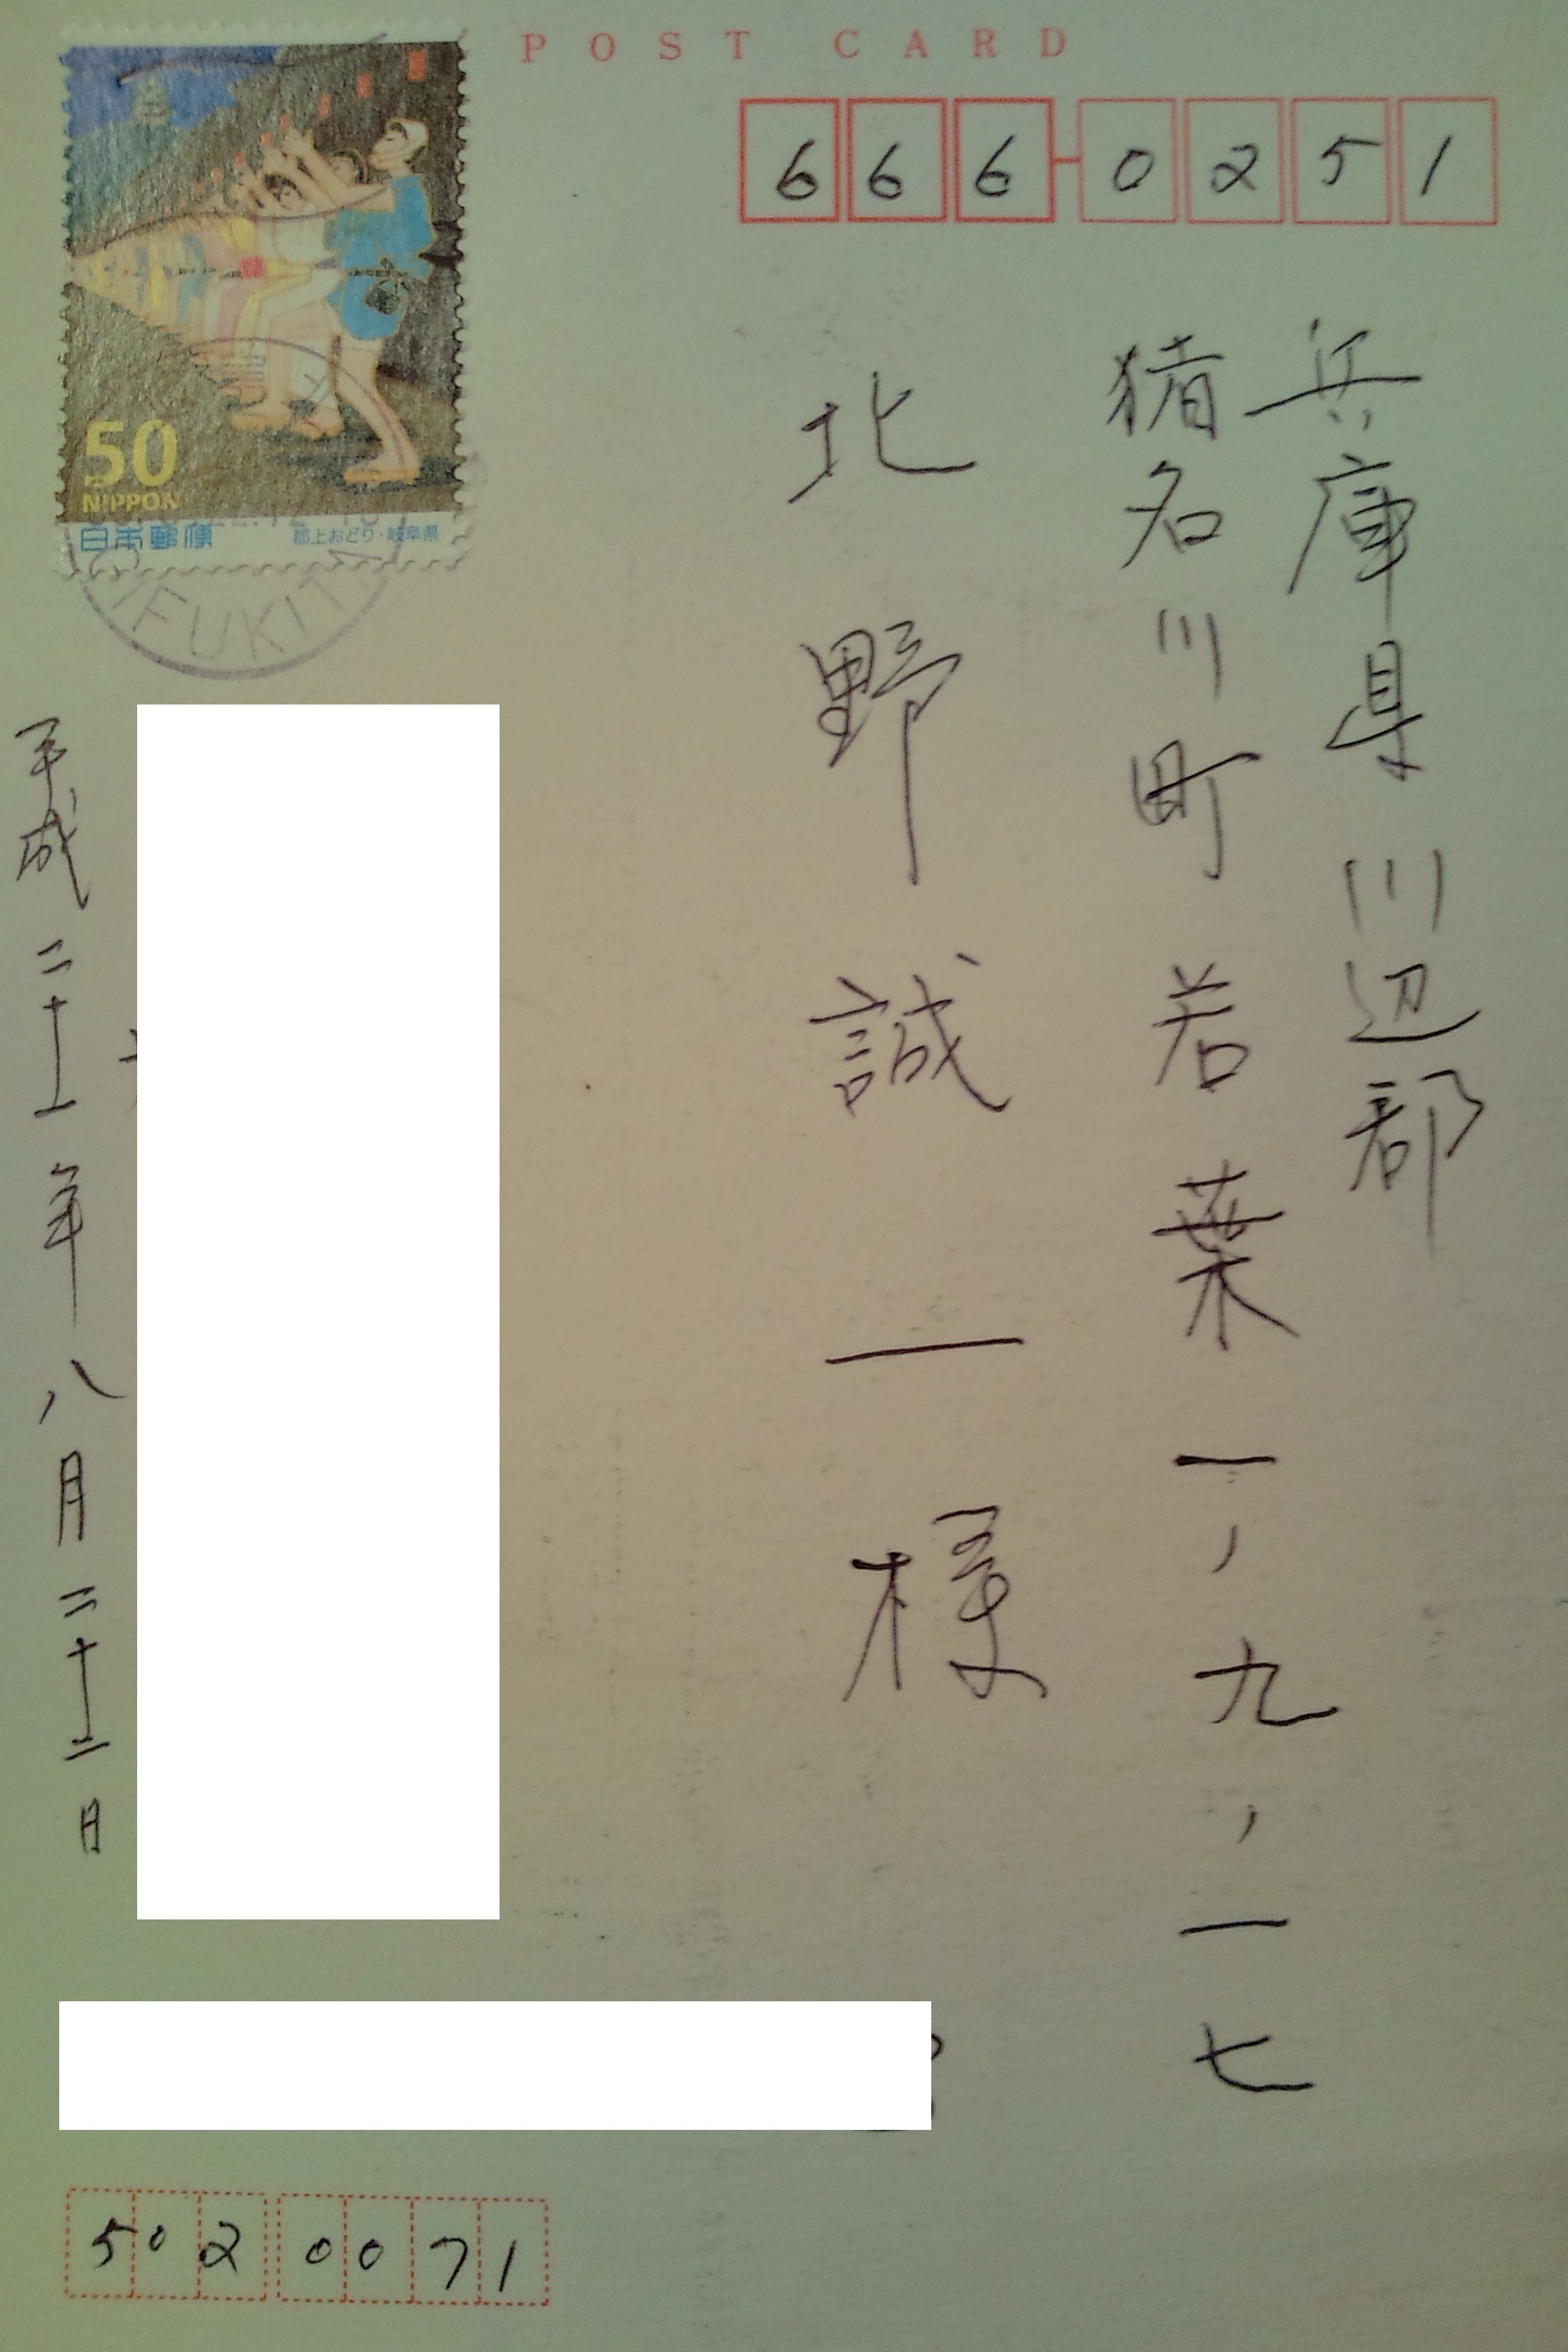 POST CARD
666-0251
兵庫県川辺郡
猪名川町若葉一、九、一七
北野誠一様
50
NIPPON
日本郵便 郡上おどり・岐阜県
GIFUKITA
平成二十一年八月二十二日
502 0071